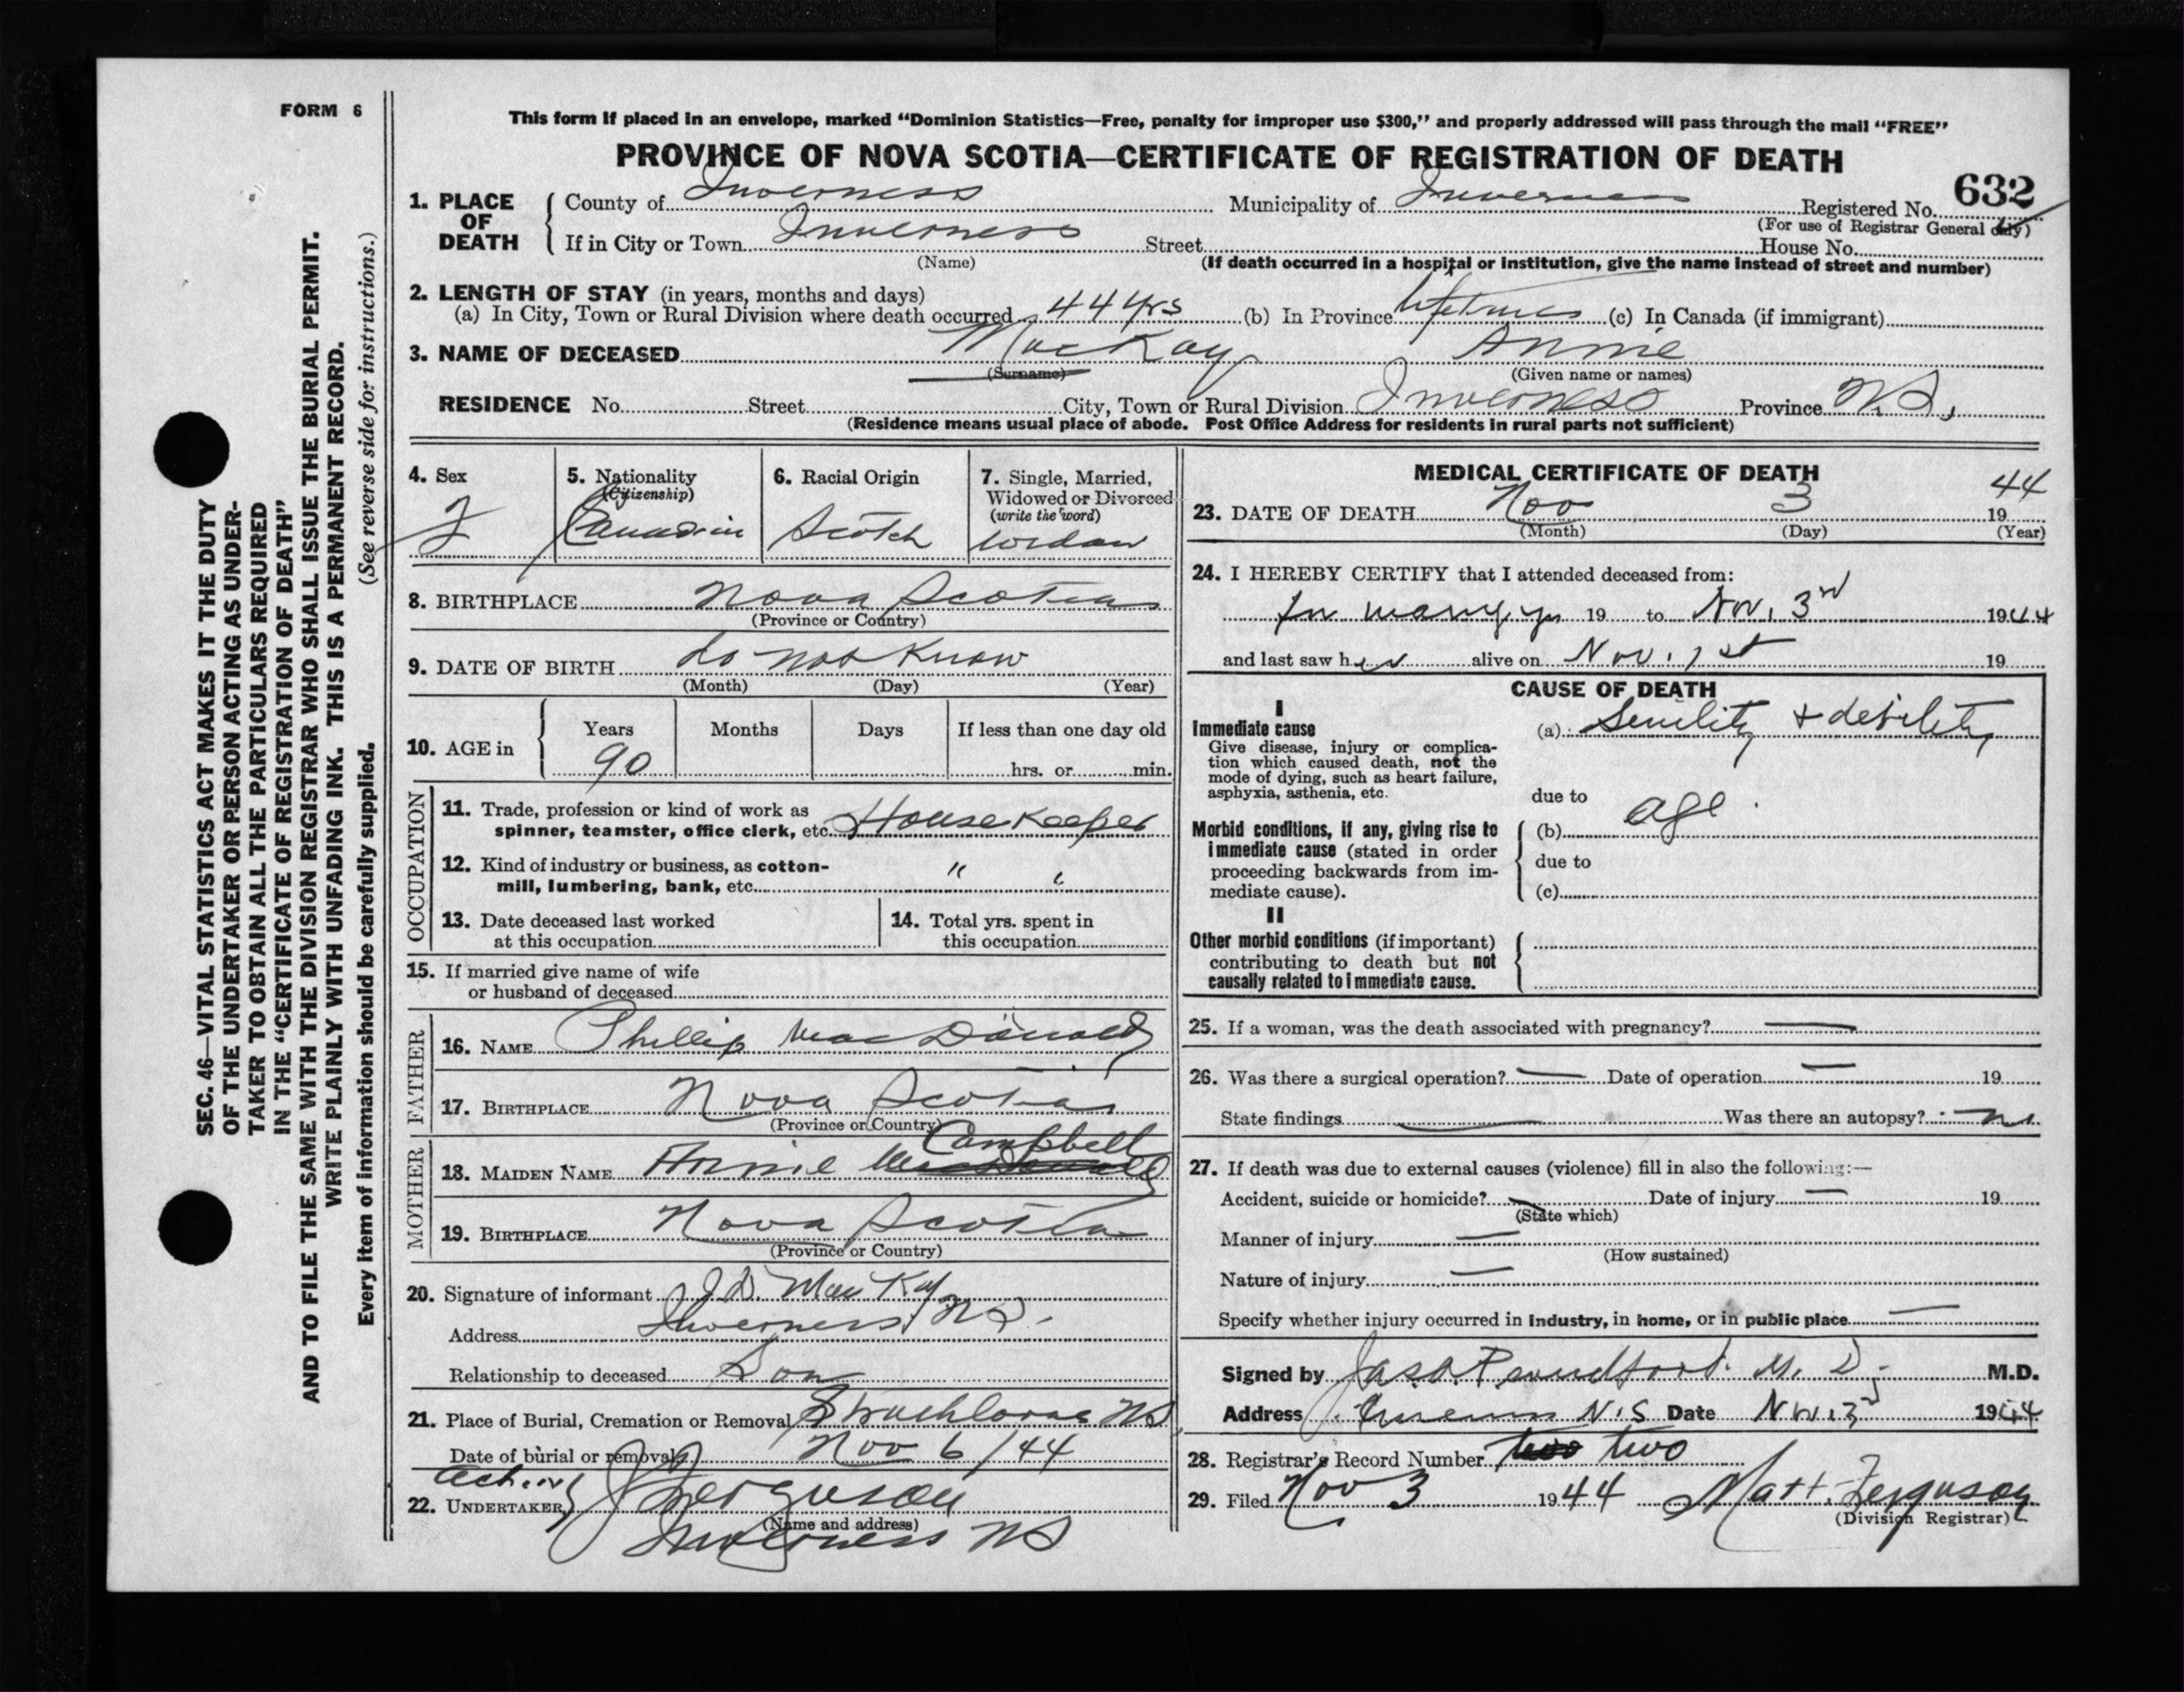 FORM 6
SEC. 46—VITAL STATISTICS ACT MAKES IT THE DUTY
OF THE UNDERTAKER OR PERSON ACTING AS UNDER-
TAKER TO OBTAIN ALL THE PARTICULARS REQUIRED
IN THE "CERTIFICATE OF REGISTRATION OF DEATH"
AND TO FILE THE SAME WITH THE DIVISION REGISTRAR WHO SHALL ISSUE THE BURIAL PERMIT.
WRITE PLAINLY WITH UNFADING INK. THIS IS A PERMANENT RECORD.
Every item of information should be carefully supplied. (See reverse side for instructions.)
This form if placed in an envelope, marked "Dominion Statistics—Free, penalty for improper use $300," and properly addressed will pass through the mail "FREE"
PROVINCE OF NOVA SCOTIA—CERTIFICATE OF REGISTRATION OF DEATH
1. PLACE OF DEATH County of Inverness Municipality of Inverness Registered No. 632
(For use of Registrar General only)
If in City or Town Inverness Street House No.
(Name) (If death occurred in a hospital or institution, give the name instead of street and number)
2. LENGTH OF STAY (in years, months and days)
(a) In City, Town or Rural Division where death occurred 44 yrs (b) In Province (c) In Canada (if immigrant)
3. NAME OF DECEASED MacKay Annie
(Surname) (Given name or names)
RESIDENCE No. Street City, Town or Rural Division Inverness Province N.S.
(Residence means usual place of abode. Post Office Address for residents in rural parts not sufficient)
4. Sex F
5. Nationality (Citizenship) Canadian
6. Racial Origin Scotch
7. Single, Married, Widowed or Divorced (write the word) Widow
8. BIRTHPLACE Nova Scotia
(Province or Country)
9. DATE OF BIRTH do not Know
(Month) (Day) (Year)
10. AGE in Years 90 Months Days If less than one day old
hrs. or min.
OCCUPATION
11. Trade, profession or kind of work as
spinner, teamster, office clerk, etc. House Keeper
12. Kind of industry or business, as cotton-
mill, lumbering, bank, etc. " "
13. Date deceased last worked
at this occupation
14. Total yrs. spent in
this occupation
15. If married give name of wife
or husband of deceased
FATHER
16. NAME Phillip MacDonald
17. BIRTHPLACE Nova Scotia
(Province or Country)
MOTHER
18. MAIDEN NAME Annie MacDonald Campbell
19. BIRTHPLACE Nova Scotia
(Province or Country)
20. Signature of informant J D. MacKay
Address Inverness N S.
Relationship to deceased Son
21. Place of Burial, Cremation or Removal Strathlorne NS
Date of burial or removal Nov 6/44
22. UNDERTAKER Acting J Ferguson
(Name and address)
Inverness NS
MEDICAL CERTIFICATE OF DEATH
23. DATE OF DEATH Nov 3 1944
(Month) (Day) (Year)
24. I HEREBY CERTIFY that I attended deceased from:
for many yrs 19 to Nov. 3rd 1944
and last saw her alive on Nov. 1st 19
CAUSE OF DEATH
I
Immediate cause
Give disease, injury or complica-
tion which caused death, not the
mode of dying, such as heart failure,
asphyxia, asthenia, etc.
(a) Senility + debility
due to
Morbid conditions, if any, giving rise to
immediate cause (stated in order
proceeding backwards from im-
mediate cause).
(b) age.
due to
(c)
II
Other morbid conditions (if important)
contributing to death but not
causally related to immediate cause.
25. If a woman, was the death associated with pregnancy? —
26. Was there a surgical operation? — Date of operation — 19
State findings — Was there an autopsy? no
27. If death was due to external causes (violence) fill in also the following:—
Accident, suicide or homicide? — Date of injury — 19
(State which)
Manner of injury —
(How sustained)
Nature of injury —
Specify whether injury occurred in industry, in home, or in public place —
Signed by M. D. M.D.
Address Inverness N.S Date Nov. 3rd 1944
28. Registrar's Record Number two two
29. Filed Nov 3 1944 Matt. Ferguson
(Division Registrar)